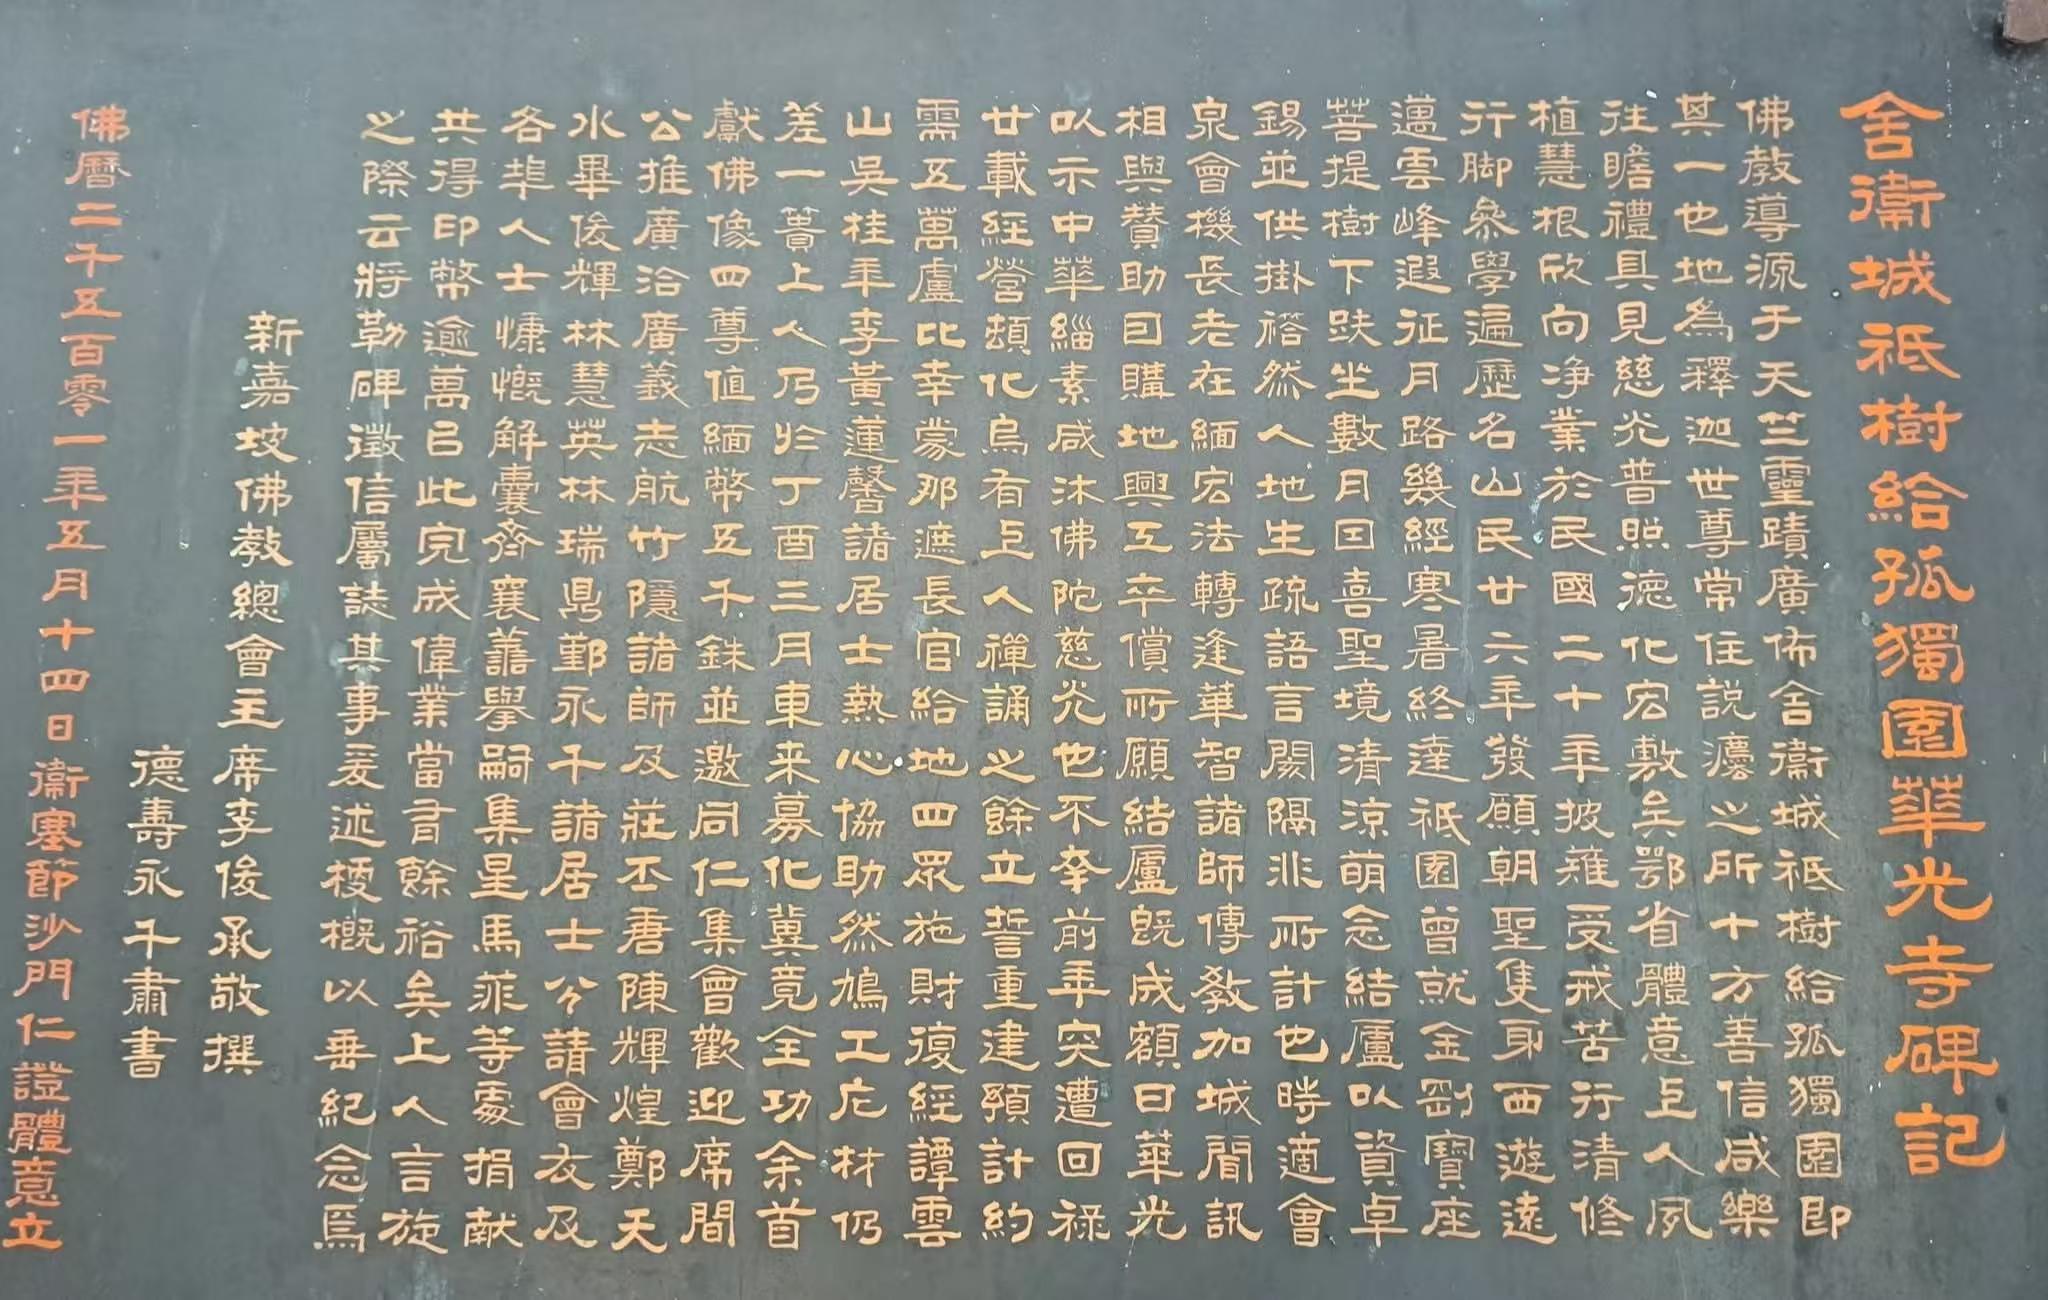 舍衞城祇樹給孤獨園華光寺碑記
佛教導源于天竺靈蹟廣佈舍衞城祇樹給孤獨園即
其一也地為釋迦世尊常住說灋之所十方善信咸樂
往瞻禮具見慈光普照德化宏敷矣鄂省體意上人夙
植慧根欣向净業於民國二十年披薙受戒苦行清修
行脚參學遍歷名山民廿六年發願朝聖隻身西遊遠
邁雲峰遐征月路幾經寒暑終達祇園曾就金剛寶座
菩提樹下趺坐數月因喜聖境清涼萌念結廬以資卓
錫並供掛褡然人地生疏語言閡隔非所計也時適會
泉會機長老在緬宏法轉逢華智諸師傳教加城聞訊
相與贊助囙購地興工卒償所願結廬既成額曰華光
以示中華緇素咸沐佛陀慈光也不幸前年突遭回祿
廿載經營頓化烏有上人禪誦之餘立誓重建預計約
需五萬盧比幸蒙那遮長官給地四眾施財復經譚雲
山吳桂年李黃蓮馨諸居士熱心協助然鳩工庀材仍
差一簣上人乃於丁酉三月東来募化冀竟全功余首
獻佛像四尊值緬幣五千銖並邀同仁集會歡迎席間
公推廣洽廣義志航竹隱諸師及莊丕唐陳輝煌鄭天
水畢俊輝林慧英林瑞鼎鄞永千諸居士公請會友及
各埠人士慷慨解囊齊襄善舉嗣集星馬菲等處捐献
共得印幣逾萬吕此完成偉業當有餘裕矣上人言旋
之際云將勒碑徵信屬誌其事爰述梗概以垂紀念焉
新嘉坡佛教總會主席李俊承敬撰
德壽永千肅書
佛曆二千五百零一年五月十四日衞塞節沙門仁證體意立